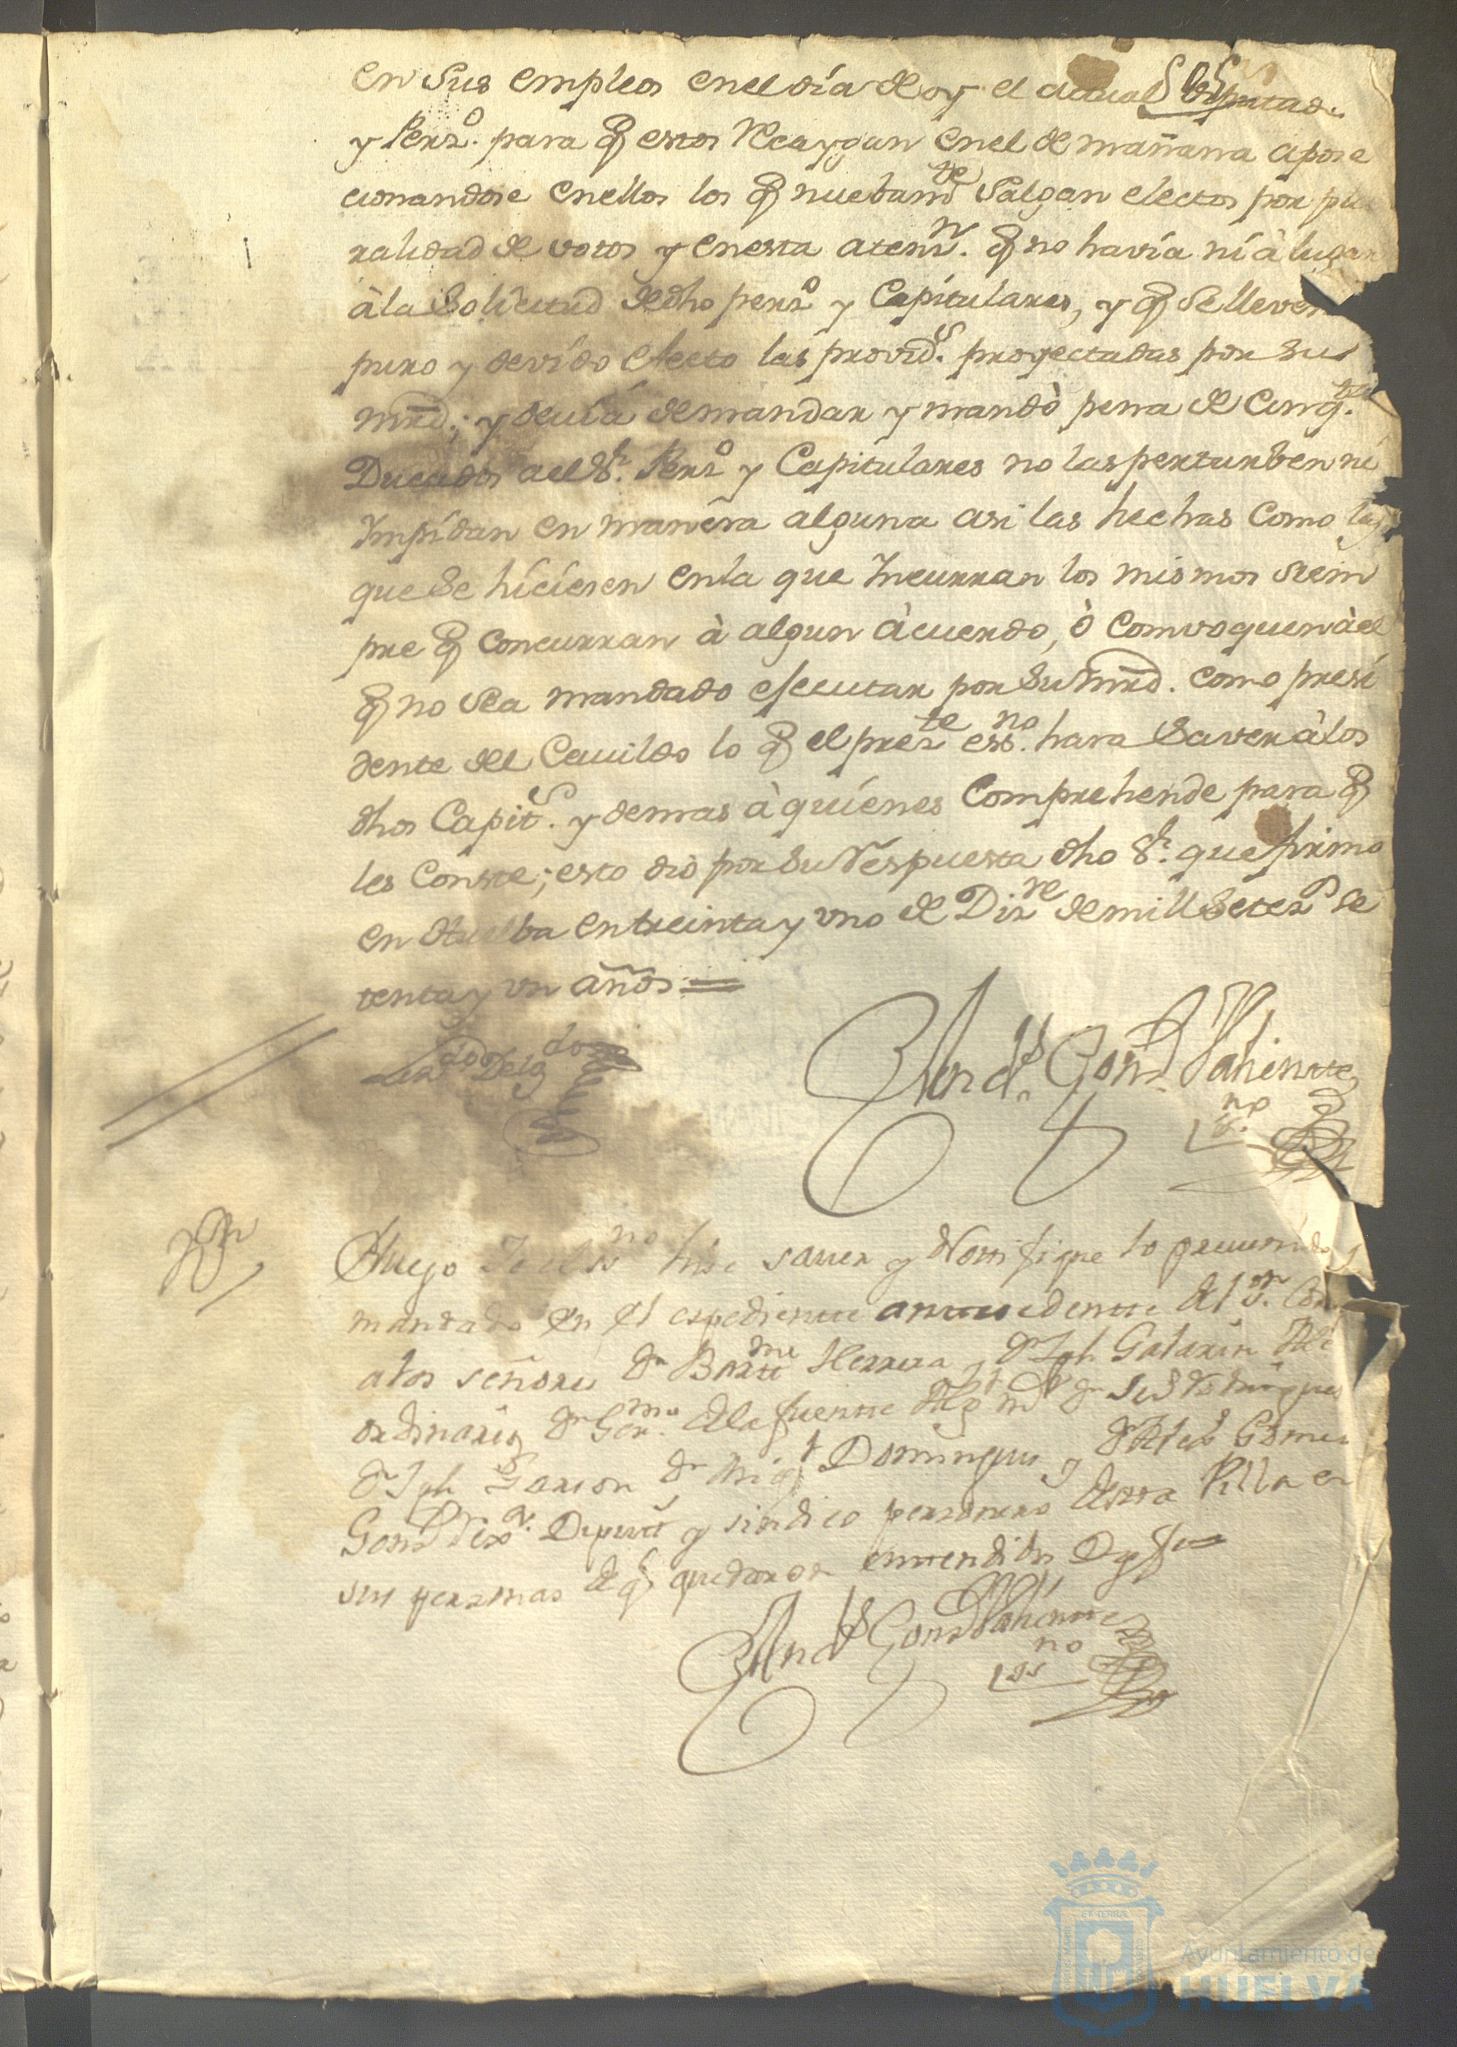 en sus empleos enel día de oy el actual Diputado
y Persro. para q estos Recaygan enel de mañana apose
cionandose enellos los q nuebamte salgan electos por plu
ralidad de votos y enesta atenn. q no havía ni à lugar
à la Solicitud dedho persro y Capítulares, y q se lleven
puro y devído efecto las provids. proyectadas por su
mrd; y devía demandar y mandò pena de cinqta
Ducados a el Sr. Persro y Capitulares no las perturben ni
Impídan en manera alguna asi las hechas como las
que se hícíeren enla que Incurran los mismos siem
pre q concurran à algun àcuerdo, ò comvoquen à el
q no sea mandado efecutar por su mrd. como presi
dente del Cavildo lo q el prezte essno. hara saver à los
dhos Capits. y demas à quíenes Comprehende para q
les conste; esto dió por su Respuesta dho Sr. que firmo
en Huelba en treinta y uno de Dizre de mill setezs se
tenta y un años =
Lizdo Delgdo
Andrs. Gonz Vahemte
Essno
Nn
Luego Yo el Essno hise saver y Nottifique lo
mandado en el espediente antecedentte del Sr. Corr
a los señores Dn Bartme Herrera y Dn Jph Galarin Alc
ordinarios Dn Germo. de la fuentte
Dn Jph Garzon Dn Migl Domingues y Gomes
Gonz Diputs y sindico personero desta Villa en
sus personas de q quedaron enttendidos Doy fee =
Andrs Gonz Vahemte
Essno
Ayuntamiento de
HUELVA